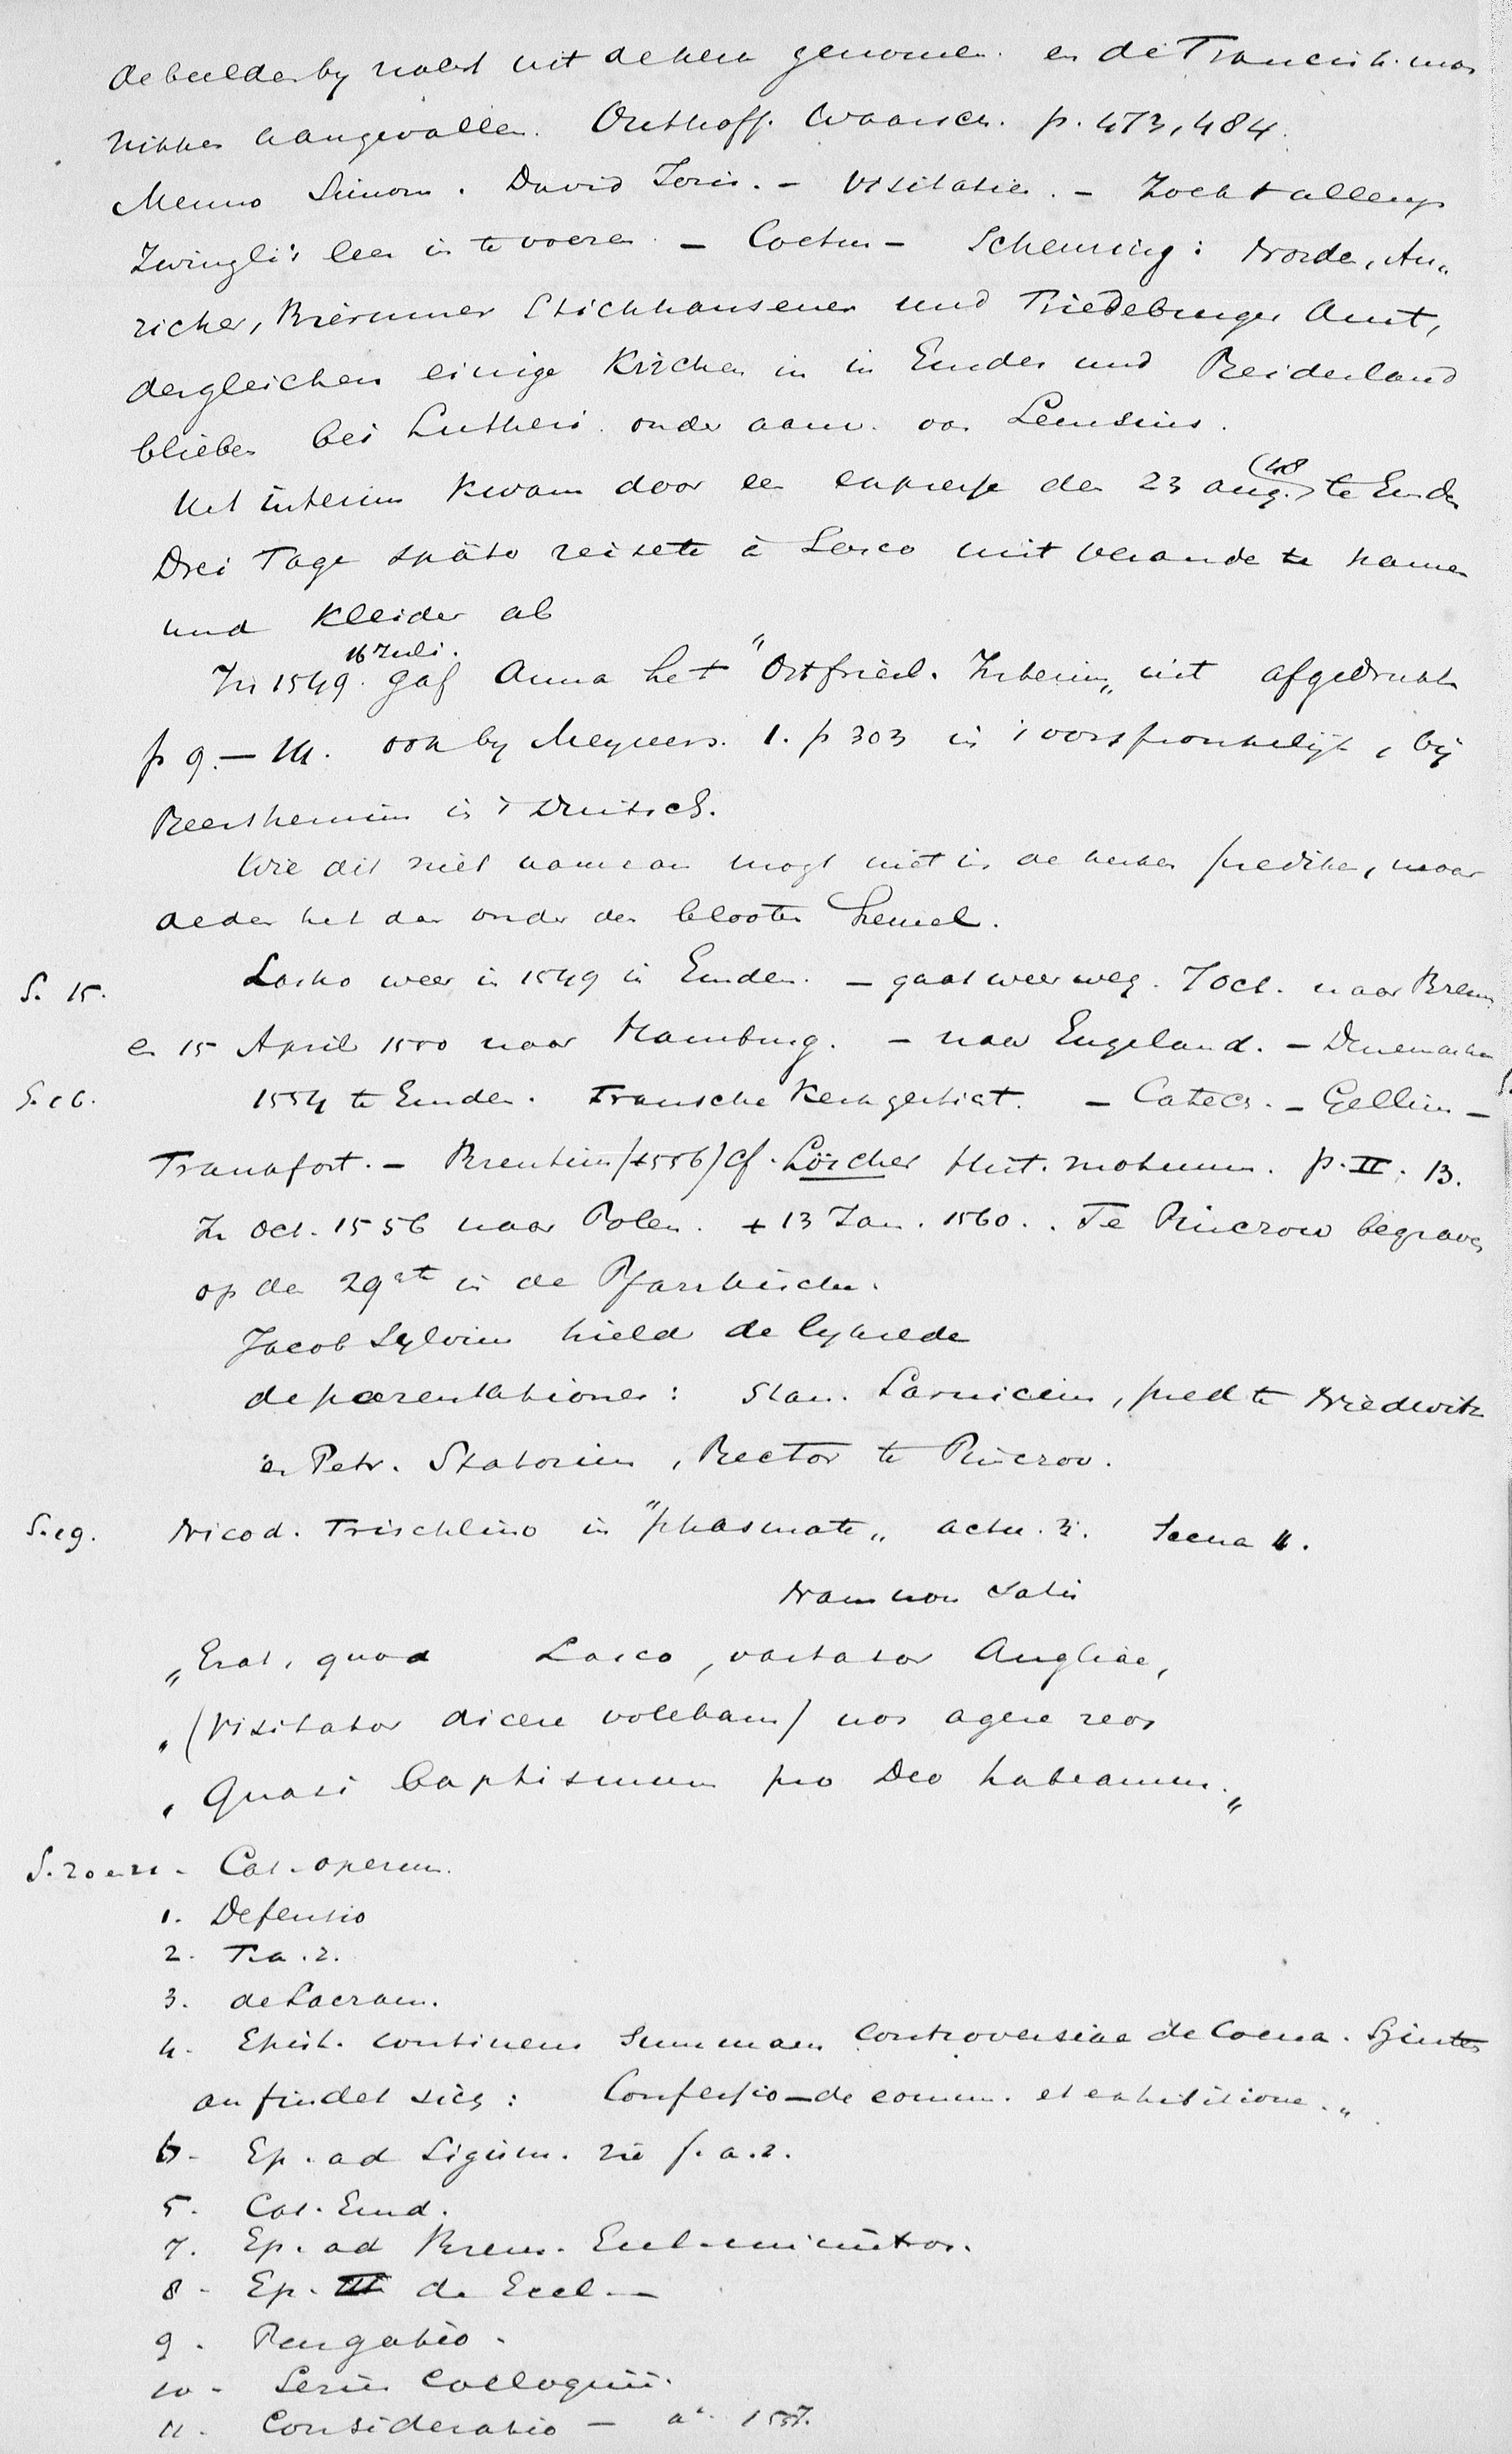 de beelden by nacht uit de kerk genomen. en de Francisk. mon
nikken aangevallen. Outhoff. Waarsch. p. 473, 484.
Menno Simons. David Joris. – Visitatie. – Zocht allengs
Zwingli's leer in te voeren. – Coetus – Scheuring: Norder, Au„
richer, Briemmer Stickhausener und Friedeburger Amt,
dergleichen einige Kirchen in in Emden und Reiderland
blieben bei Luthers. onder aanv. van Lemsius.
Het interim kwam door een expresse den 23 aug. (48 te Emden
Drei Tage später reisete à Lasco mit verande te namen
und Kleider ab
In 1549. 16 Juli. gaf Anna het "Ostfriesl. Interim„ uit afgedrukt
p 9.– 14. ook by Meyners. 1. p 303 in 't oorspronkelijk, bij
Beershemius in 't Duitsch.
Wie dit niet aannam mogt niet in de kerken prediken, maar
deden het dan onder den blooten hemel.
S. 15. Lasko weer in 1549 in Emden. – gaat weer weg. 7 Oct. naar Brem
en 15 April 1550 naar Hamburg. – naar Engeland. – Denemarken
S. 16. 1554 te Emden. Fransche Kerk gesticht. – Catech. – Gellius –
Francfort. – Brentius (1556) cf. Löscher Hist. motuum. p. II. 13.
In Oct. 1556 naar Polen. + 13 Jan. 1560. . Te Pinczow begraven
op den 29ste in de Pfarrkirche.
Jacob Sylvius hield de lykrede
de parentationes: Stan. Sarnicius, pred te Niedwitz
en Petr. Statorius, Rector te Pinczov.
S. 19. Nicod. Frischlino in "phasmate„ actu. 3. Scena 4.
Nam non satis
„Erat, quod Lasco, vastator Angliae,
„(Visitator dicere volebam) nos agere reos
„Quasi baptismum pro Deo habeamus.„
S. 20 en 21 – Cat. operum.
1. Defensio
2. Tra. 2.
3. de Sacram.
4. Epist. continens summam Controversiae de Coena. hinten
an findet sich: Confessio – de comm. et exhibitione.„
6 – Ep. ad Sigism. zie p. a. 2.
5. Cat. Emd.
7. Ep. ad Brem. Eccl. ministros.
8 – Ep. III de Eccl. —
9. Purgatio.
10 – Series Colloquii.
11. Consideratio – a°. 1557.